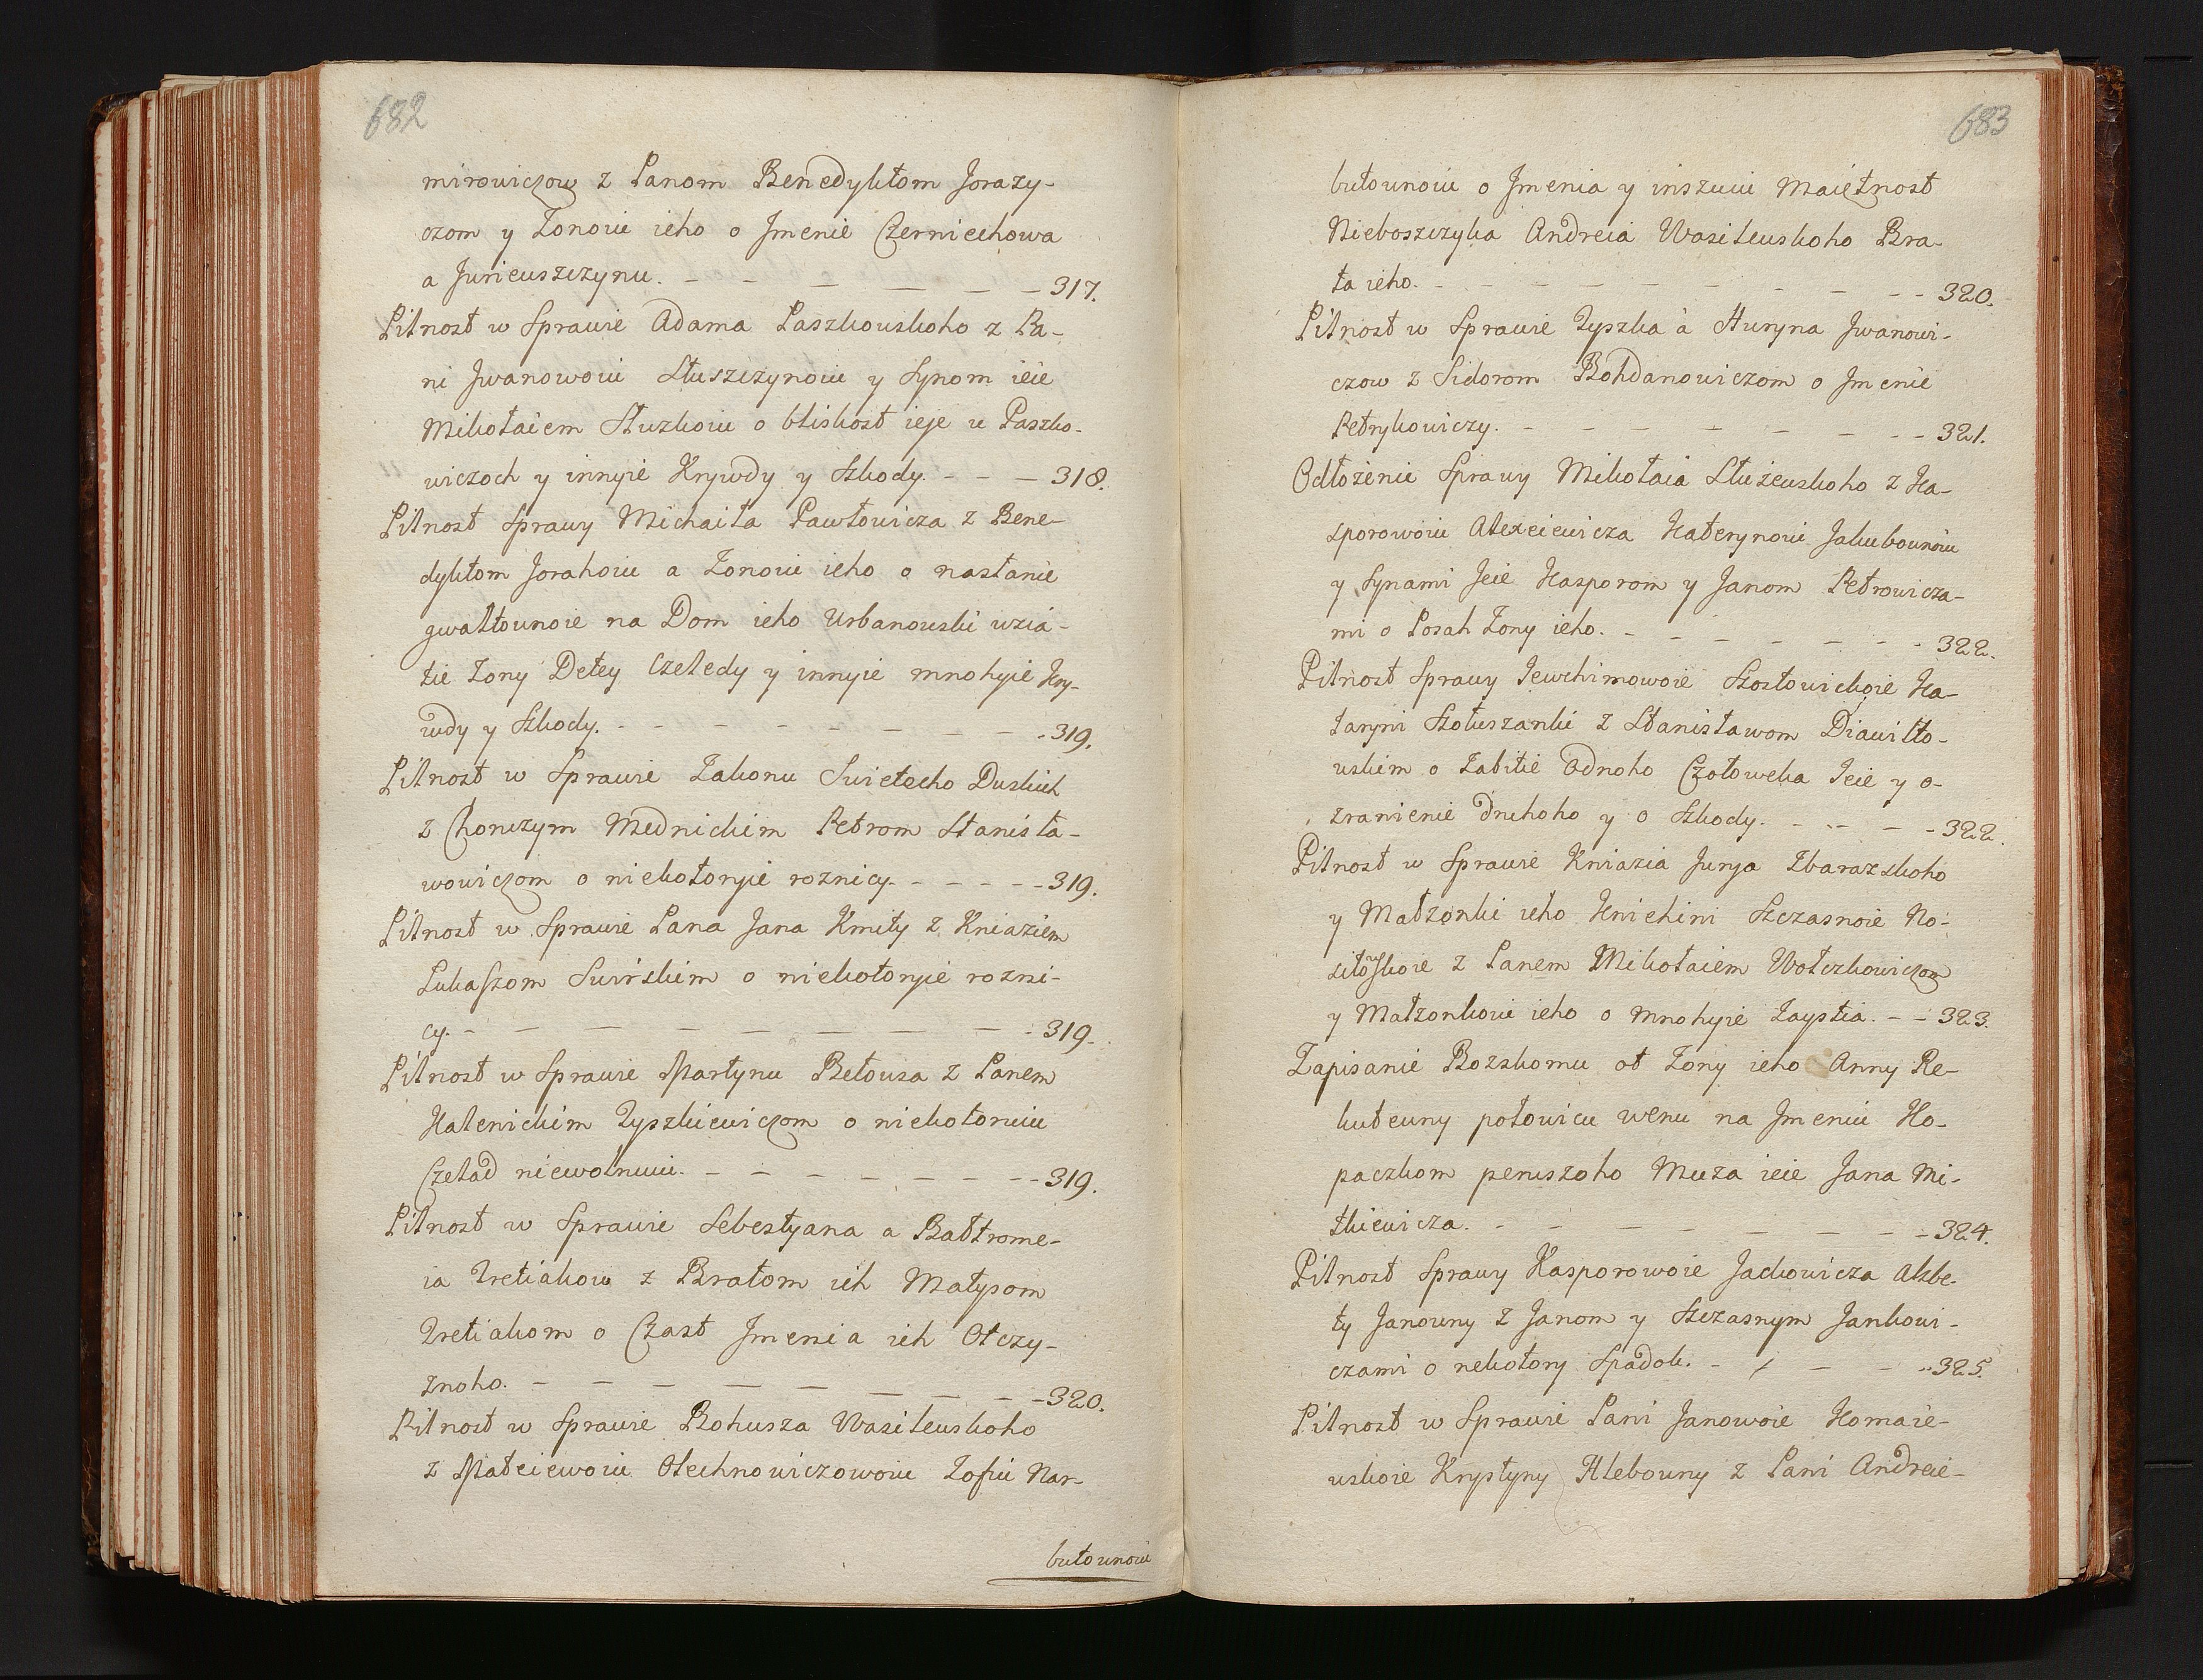 682
mirowiczow z Panom Benedyktom Jorazy-
czom y Zonoiu ieho o Jmenie Czerniechowa
a Jurieuszczynu. - - - - - - 317.
Pilnost w Sprawie Adama Paszkouskoho z Pa-
ni Jwanowoiu Słuszczynoiu y Synom ieie
Mikołaiem Słuzkoiu o bliskost ieje u Paszko-
wiczoch y innyie Krywdy y Szkody. - - - 318.
Pilnost Sprawy Michaiła Pawłowicza z Bene-
dyktom Jorahoiu a Zonoiu ieho o nasłanie
gwałtounoie na Dom ieho Urbanouski wzia-
tie Zony Detey Czeledy y innyie mnohyie Kry-
wdy y Szkody. - - - - - - - - 319.
Pilnost w Sprawie Zakonu Swietocho Duskich
z Chorużym Mednickim Petrom Stanisła-
wowiczom o niekotoryie roznicy. - - - - 319.
Pilnost w Sprawie Pana Jana Kmity z Kniaziem
Łukaszom Swirskim o niekotoryie rozni-
cy. - - - - - - - - 319.
Pilnost w Sprawie Martynu Bełousa z Panem
Kalenickim Tyszkiewiczom o niekotoruiu
Czelad niewolnuiu. - - - - - - - 319.
Pilnost w Sprawie Sebestyana a Bałtrome-
ia Tretiakow z Bratom ich Matysom
Tretiakom o Czast Jmenia ich Otczy-
znoho. - - - - - - - - 320.
Pilnost w Sprawie Bohusza Wasileuskoho
z Mateiewoiu Olechnowiczowoiu Zofiu Nar-
butounoiu
683
butounoiu o Jmenia y inszuiu Maiętnost
Nieboszczyka Andreia Wasileuskoho Bra-
ta ieho. - - - - - - - - - - 320.
Pilnost w Sprawie Tyszka a Huryna Jwanowi-
czow z Sidorom Bohdanowiczom o Jmenie
Petrykowiczy. - - - - - - - - 321.
Odłożenie Sprawy Mikołaia Służeuskoho z Ka-
sporowoiu Alexeiewicza Katerynoiu Jakubounoiu
y Synami Jeie Kasporom y Janom Petrowicza-
mi o Posah Zony ieho. - - - - - - - 322.
Pilnost Sprawy Jewchimowoie Szostowickoie Ka-
taryni Szołuszanki z Stanisławom Diawiłto-
uskim o Zabitie Odnoho Człoweka Jeie y o-
zranienie druhoho y o Szkody. - - - - 322.
Pilnost w Sprawie Kniazia Jurja Zbarazskoho
y Małzonki ieho Knichini Szczasnoie No-
siłowskoie z Panem Mikołaiem Wołczkowiczom
y Małzonkoiu ieho o mnohyie Zaystia. - - 323.
Zapisanie Bozskomu ot Zony ieho Anny Re-
kuteuny połowicu wenu na Jmeniu Ko-
paczkom peruszoho Muza ieie Jana Mi-
tkiewicza. - - - - - - - - 324.
Pilnost Sprawy Kasporowoie Jackowicza Alzbe-
ty Janouny z Janom y Szczasnym Jankowi-
czami o nekotory Spadok. - - - - 325.
Pilnost w Sprawie Pani Janowoie Komaie-
uskoie Krystyny Hlebouny z Pani Andreie-